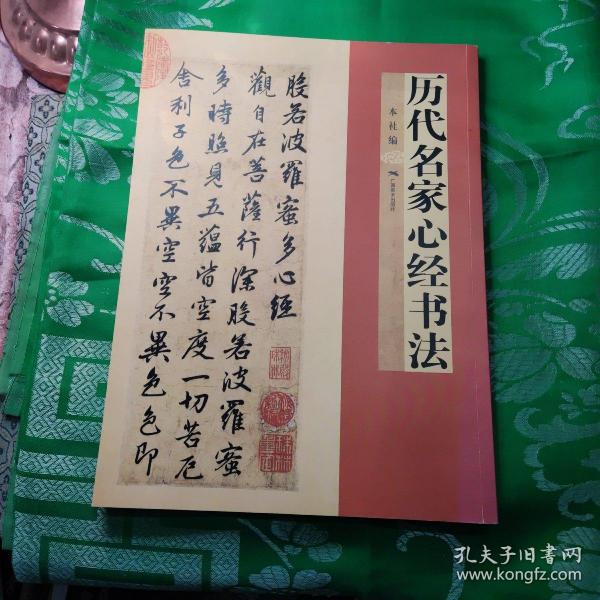 历代名家心经书法
本社编
广西美术出版社
般若波羅蜜多心經
觀自在菩薩行深般若波羅蜜
多時照見五蘊皆空度一切苦厄
舍利子色不異空空不異色色即
孔夫子旧書网
www.kongfz.com